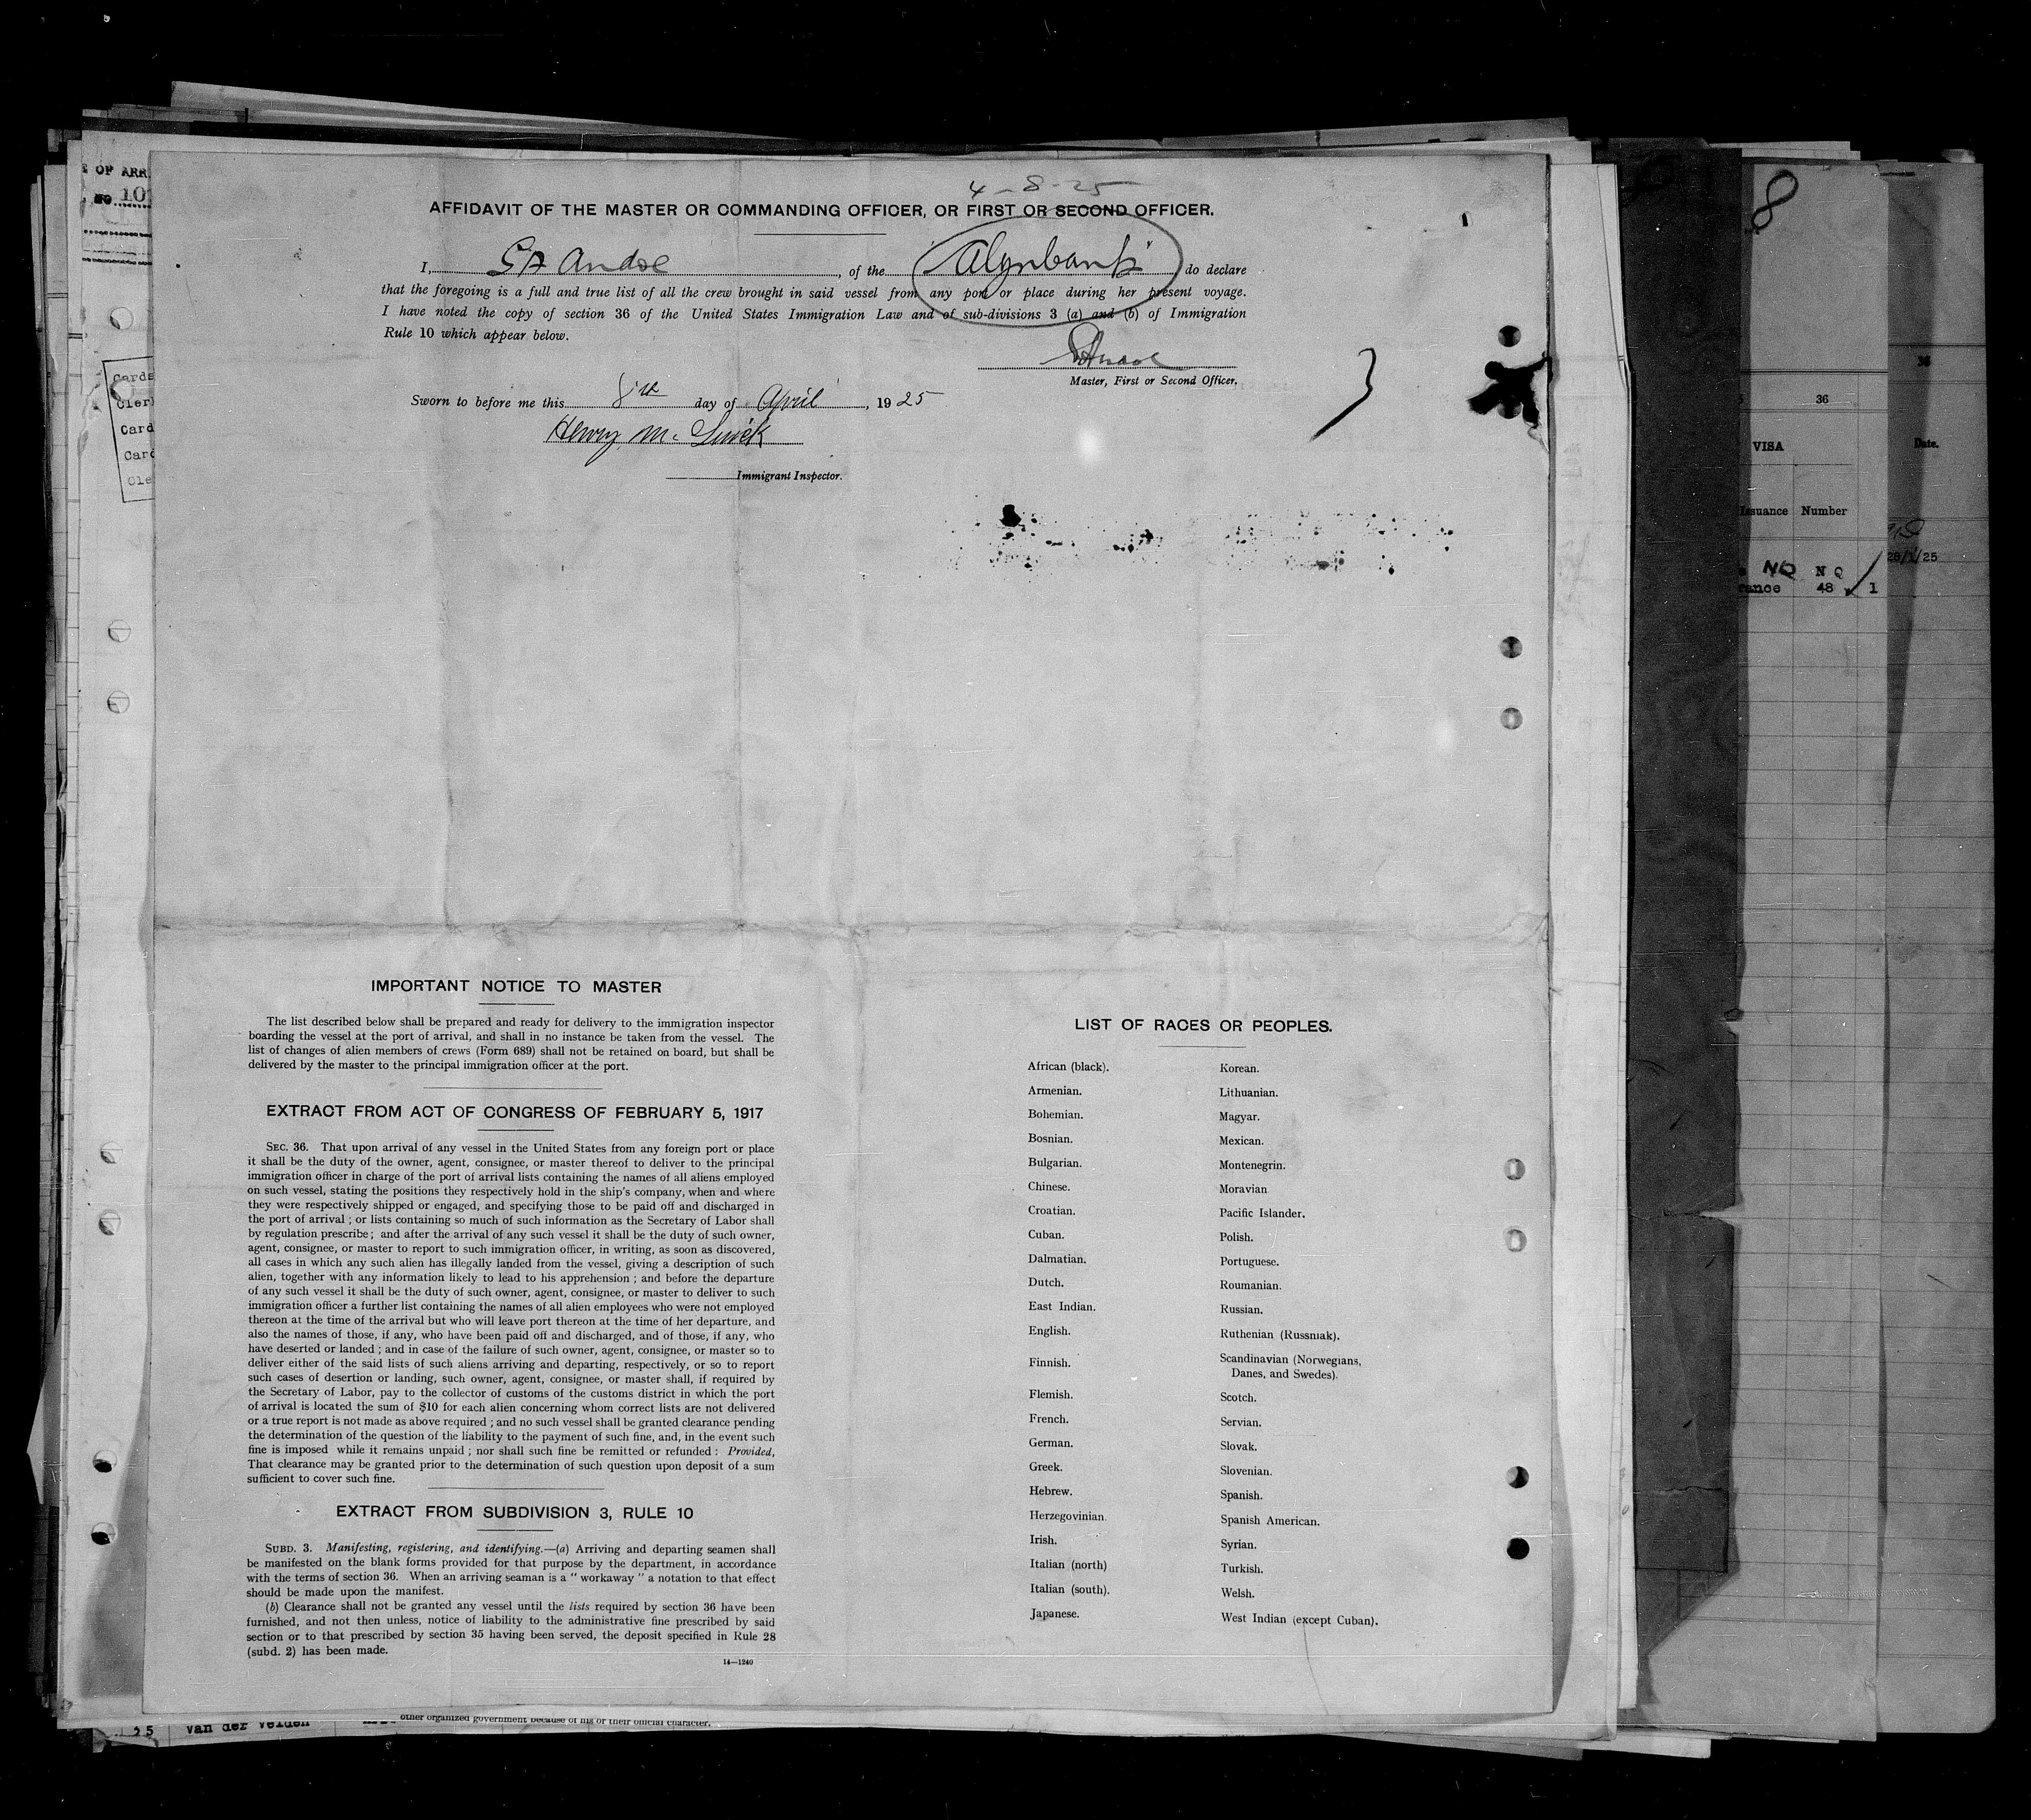 4-8-25
AFFIDAVIT OF THE MASTER OR COMMANDING OFFICER, OR FIRST OR SECOND OFFICER.
I, , of the "Alynbank" do declare
that the foregoing is a full and true list of all the crew brought in said vessel from any port or place during her present voyage.
I have noted the copy of section 36 of the United States Immigration Law and of sub-divisions 3 (a) and (b) of Immigration
Rule 10 which appear below.
Master, First or Second Officer.
Sworn to before me this 8th day of April, 1925
Henry M.
Immigrant Inspector.
IMPORTANT NOTICE TO MASTER
The list described below shall be prepared and ready for delivery to the immigration inspector
boarding the vessel at the port of arrival, and shall in no instance be taken from the vessel. The
list of changes of alien members of crews (Form 689) shall not be retained on board, but shall be
delivered by the master to the principal immigration officer at the port.
EXTRACT FROM ACT OF CONGRESS OF FEBRUARY 5, 1917
SEC. 36. That upon arrival of any vessel in the United States from any foreign port or place
it shall be the duty of the owner, agent, consignee, or master thereof to deliver to the principal
immigration officer in charge of the port of arrival lists containing the names of all aliens employed
on such vessel, stating the positions they respectively hold in the ship's company, when and where
they were respectively shipped or engaged, and specifying those to be paid off and discharged in
the port of arrival ; or lists containing so much of such information as the Secretary of Labor shall
by regulation prescribe ; and after the arrival of any such vessel it shall be the duty of such owner,
agent, consignee, or master to report to such immigration officer, in writing, as soon as discovered,
all cases in which any such alien has illegally landed from the vessel, giving a description of such
alien, together with any information likely to lead to his apprehension ; and before the departure
of any such vessel it shall be the duty of such owner, agent, consignee, or master to deliver to such
immigration officer a further list containing the names of all alien employees who were not employed
thereon at the time of the arrival but who will leave port thereon at the time of her departure, and
also the names of those, if any, who have been paid off and discharged, and of those, if any, who
have deserted or landed ; and in case of the failure of such owner, agent, consignee, or master so to
deliver either of the said lists of such aliens arriving and departing, respectively, or so to report
such cases of desertion or landing, such owner, agent, consignee, or master shall, if required by
the Secretary of Labor, pay to the collector of customs of the customs district in which the port
of arrival is located the sum of $10 for each alien concerning whom correct lists are not delivered
or a true report is not made as above required ; and no such vessel shall be granted clearance pending
the determination of the question of the liability to the payment of such fine, and, in the event such
fine is imposed while it remains unpaid ; nor shall such fine be remitted or refunded : Provided,
That clearance may be granted prior to the determination of such question upon deposit of a sum
sufficient to cover such fine.
EXTRACT FROM SUBDIVISION 3, RULE 10
SUBD. 3. Manifesting, registering, and identifying.—(a) Arriving and departing seamen shall
be manifested on the blank forms provided for that purpose by the department, in accordance
with the terms of section 36. When an arriving seaman is a " workaway " a notation to that effect
should be made upon the manifest.
(b) Clearance shall not be granted any vessel until the lists required by section 36 have been
furnished, and not then unless, notice of liability to the administrative fine prescribed by said
section or to that prescribed by section 35 having been served, the deposit specified in Rule 28
(subd. 2) has been made.
14—1240
LIST OF RACES OR PEOPLES.
African (black).
Armenian.
Bohemian.
Bosnian.
Bulgarian.
Chinese.
Croatian.
Cuban.
Dalmatian.
Dutch.
East Indian.
English.
Finnish.
Flemish.
French.
German.
Greek.
Hebrew.
Herzegovinian
Irish.
Italian (north)
Italian (south).
Japanese.
Korean.
Lithuanian.
Magyar.
Mexican.
Montenegrin.
Moravian
Pacific Islander.
Polish.
Portuguese.
Roumanian.
Russian.
Ruthenian (Russniak).
Scandinavian (Norwegians,
Danes, and Swedes).
Scotch.
Servian.
Slovak.
Slovenian.
Spanish.
Spanish American.
Syrian.
Turkish.
Welsh.
West Indian (except Cuban).
OF ARR
NO 10
Cards
Card
8
36
36
VISA
Date.
Issuance Number
28/1/25
NQ NQ
48 1
25 Van der Velden
other organized government because of his or their official character.